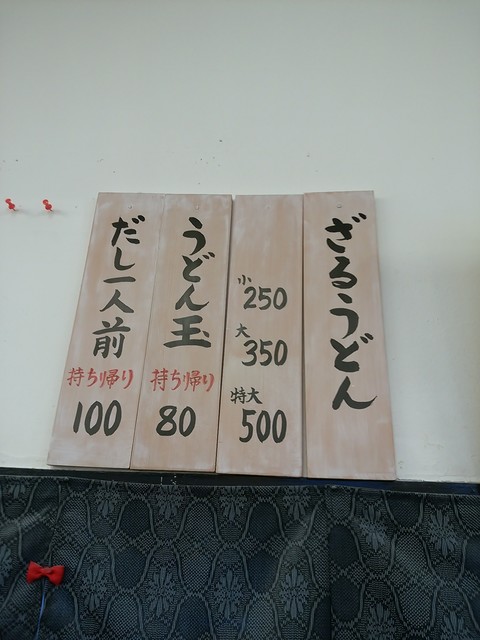 ざるうどん
小 250
大 350
特大 500
うどん玉
持ち帰り
80
だし一人前
持ち帰り
100